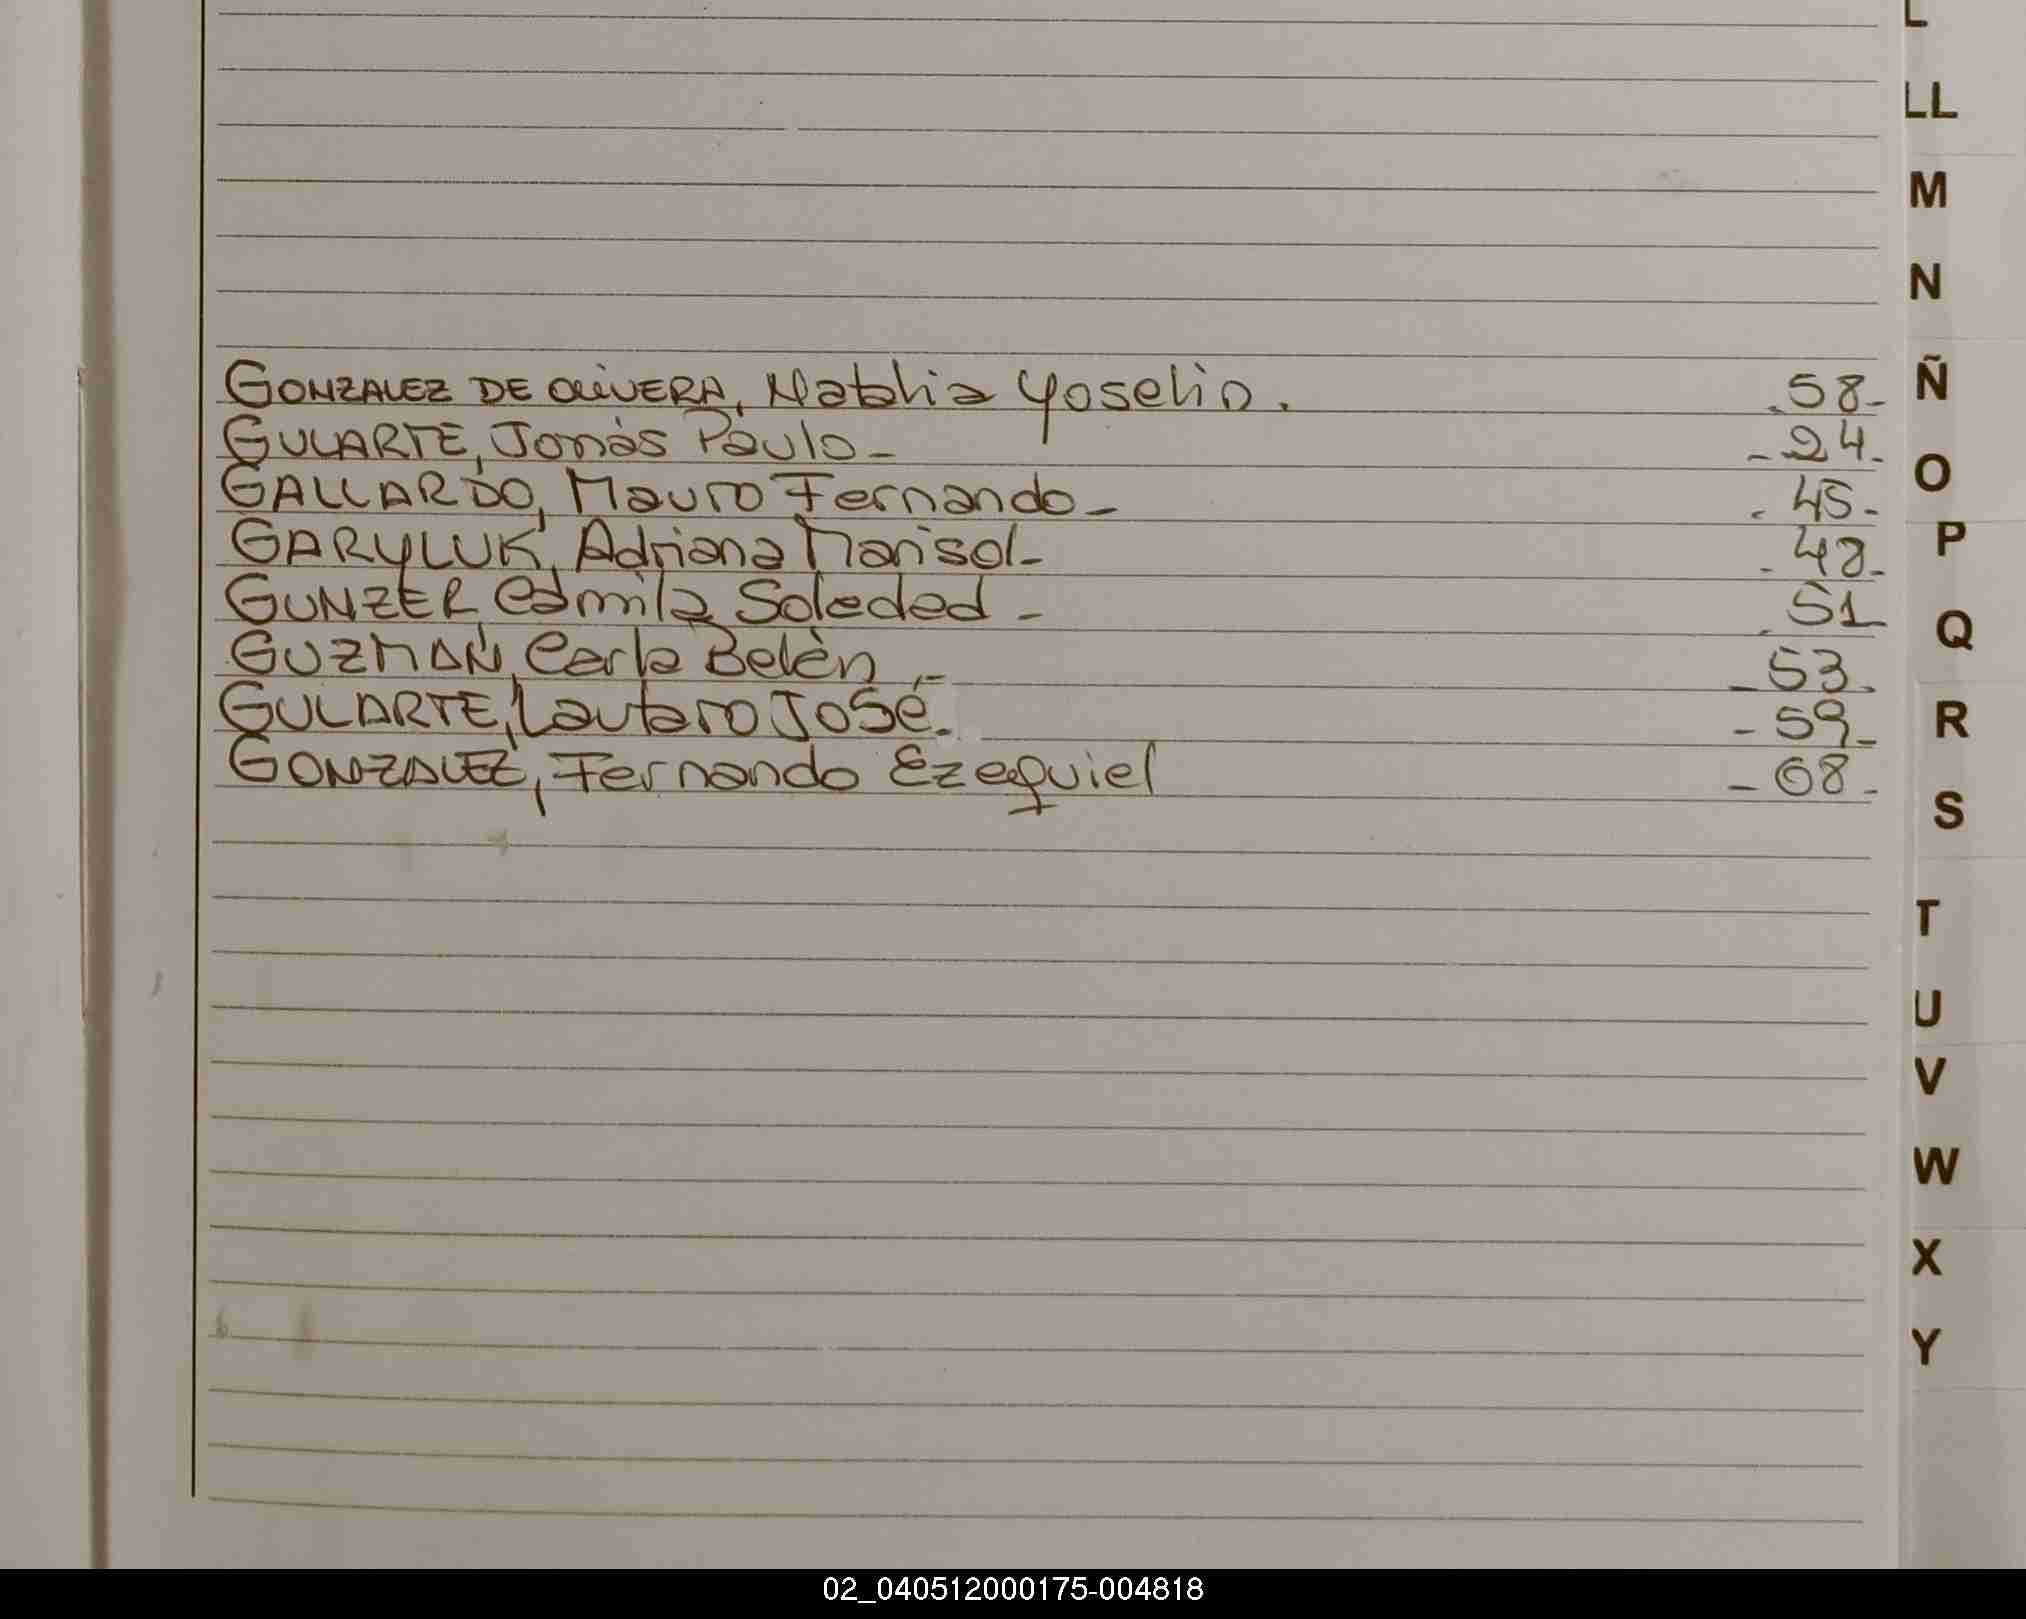 L
LL
M
N
GONZALEZ DE OLIVERA, Natalia Yoselin. .58-
Ñ
GULARTE, Jonás Paulo- -24-
O
GALLARDO, Mauro Fernando- -45-
GARYLUK, Adriana Marisol- -48-
P
GUNZER, Camila Soledad- .51-
GUZMAN, Carla Belén.- -53.
Q
GULARTE, Lautaro José. -59-
R
GONZALEZ, Fernando Ezequiel -68-
S
T
U
V
W
X
Y
02_040512000175-004818